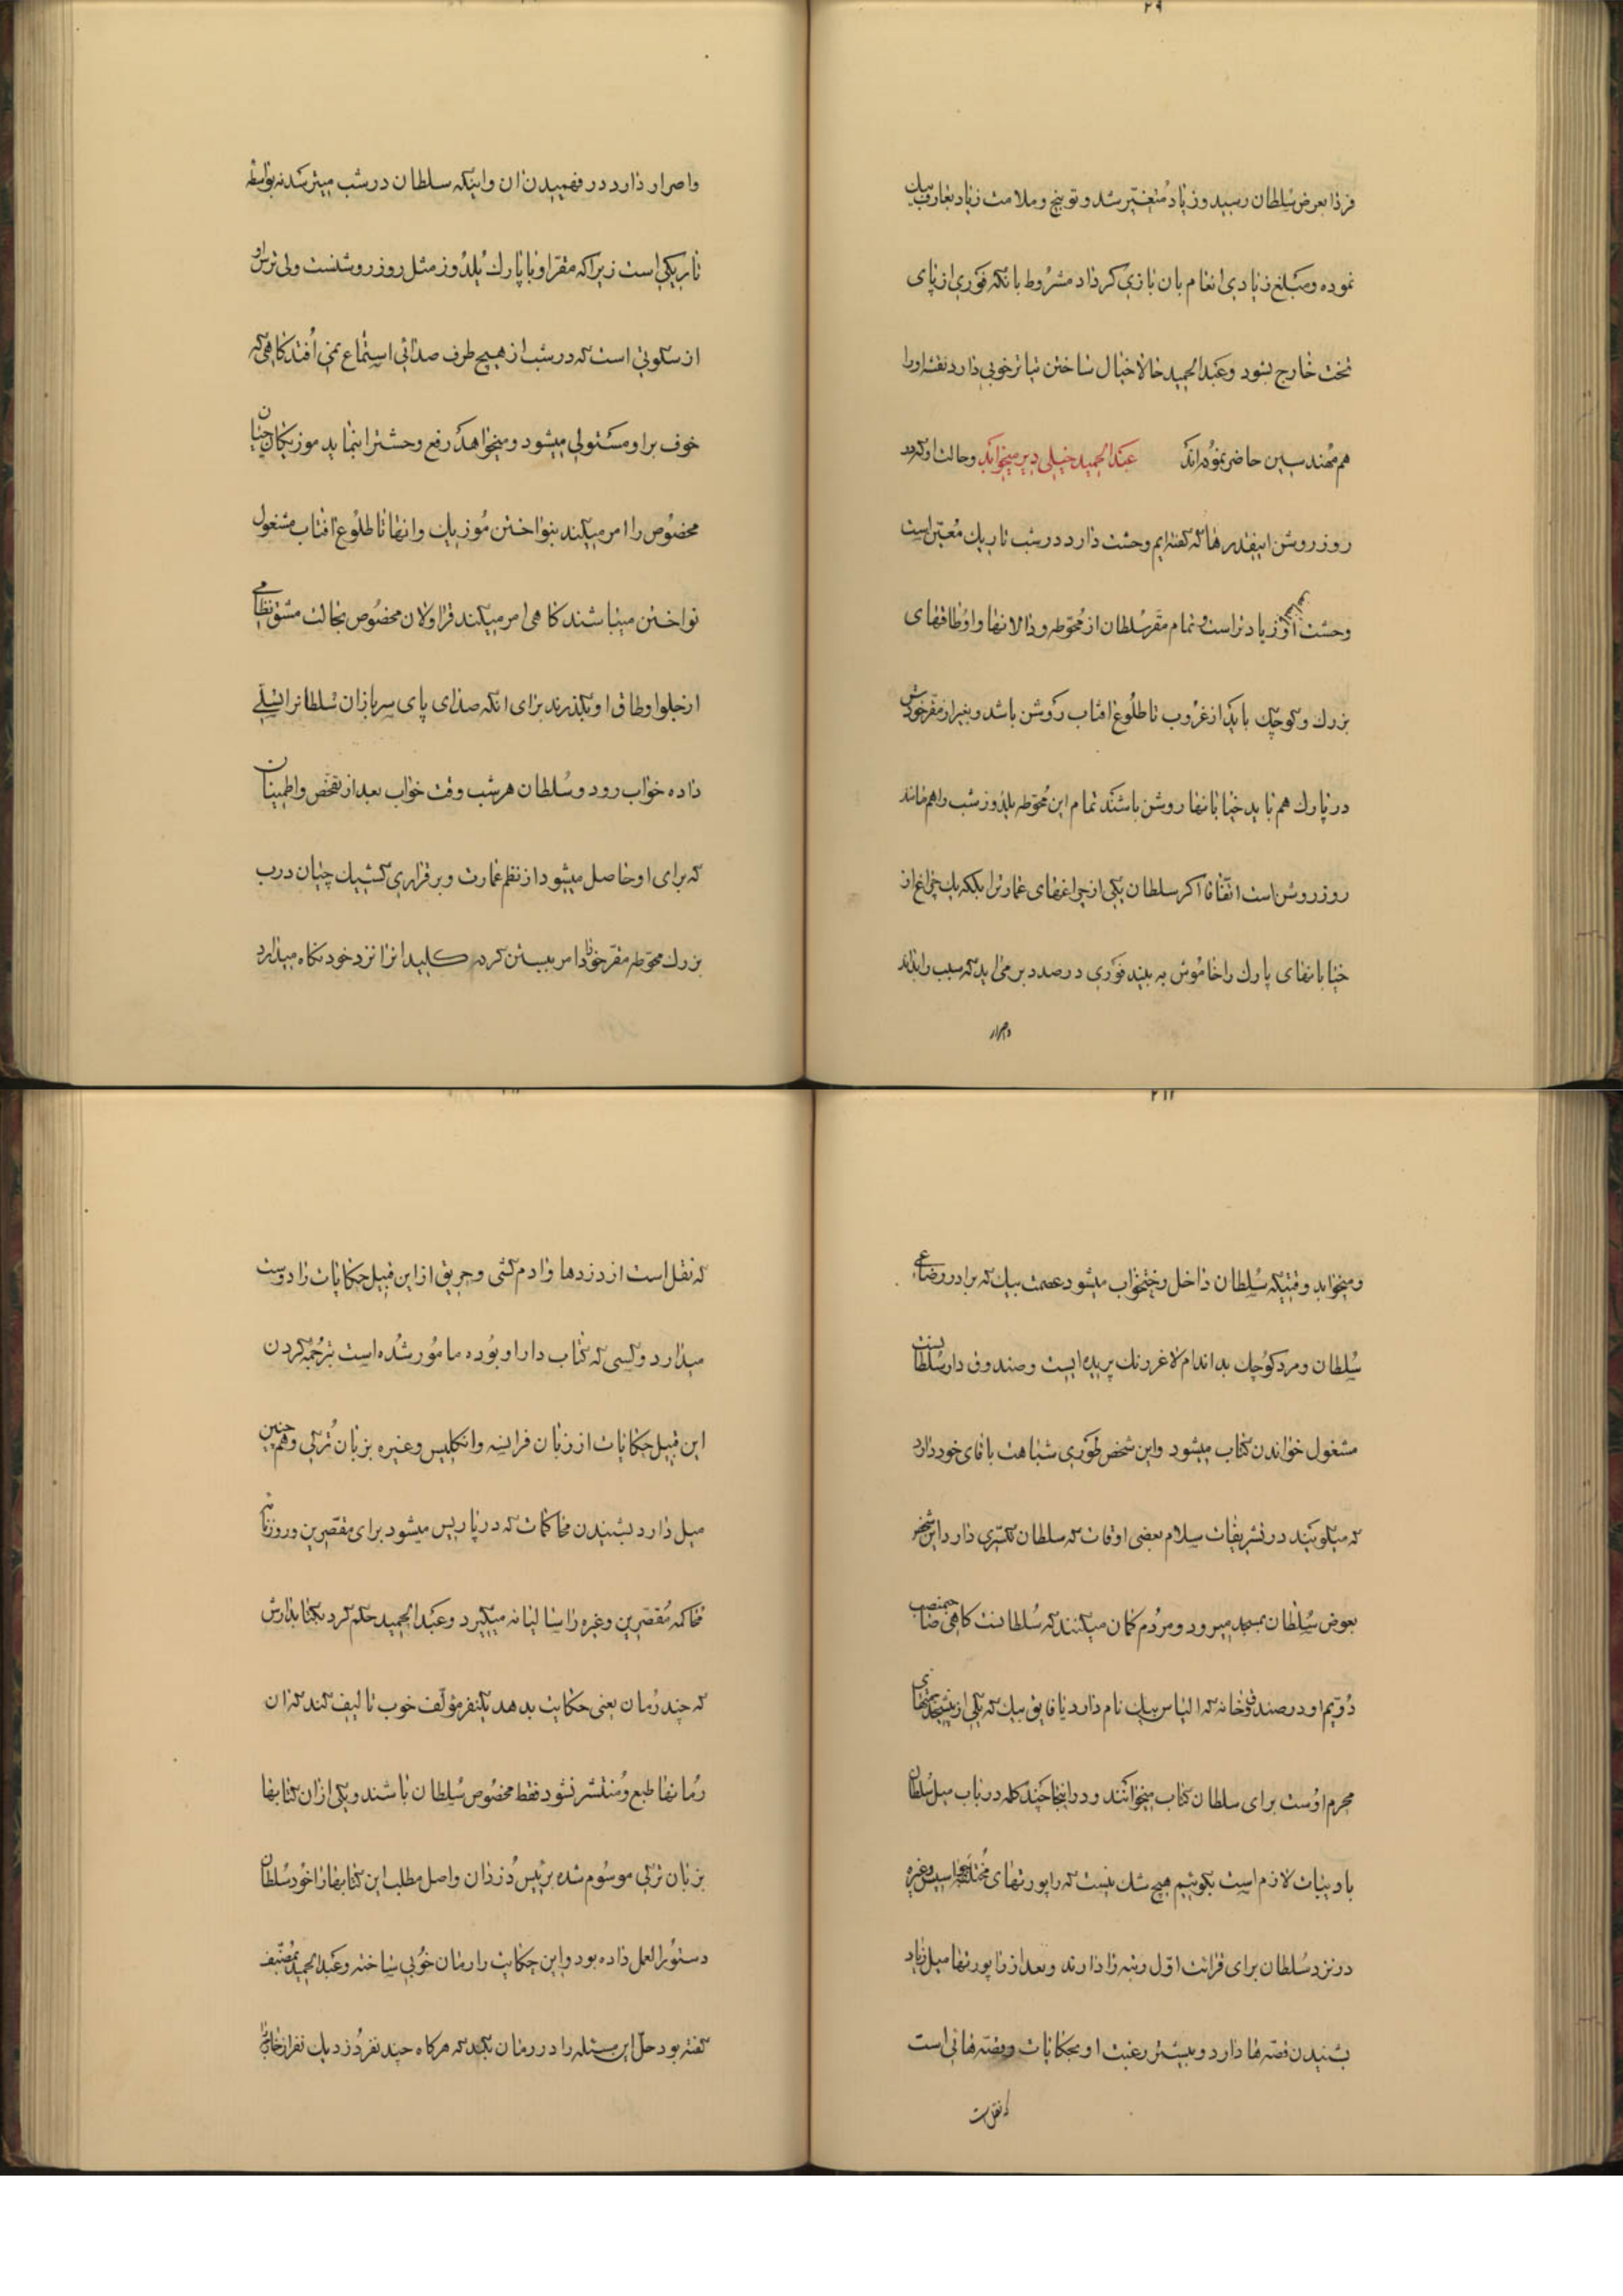 ۲۹
فردا بعرض سلطان رسید و زیاد متغیّر شد و توبیخ و ملامت زیاد بعارف بیك
نموده و مبلغ زیادی انعام بان بازی کر داد مشروط بانکه فوری از پای
تخت خارج بشود و عبدالحمید حالا خیال ساختن تیاتر خوبی دارد نقشه اورا
هم مهندسین حاضر نموده اند عبدالحمید خیلی دیر میخوابد و حالت او که در
روز روشن اینقدرها که گفته ایم وحشت دارد در شب تاریك معیّن است
وحشت او زیادتر است و تمام مقر سلطان از محوطه و دالانها و اوطاقهای
بزرك و کوچك باید از غروب تا طلوع افتاب روشن باشد و بغیر از مقر خودش
در پارك هم باید خیابانها روشن باشند تمام این محوطه یلدوز شب را هم مانند
روز روشن است اتّفاقا اکر سلطان یکی از چراغهای عمارترا بلکه یك چراغ از
خیابانهای پارك را خاموش به بیند فوری در صدد بر می اید که سبب را بداند
و اصرار
و اصرار دارد در فهمیدن ان و اینکه سلطان در شب میترسد نه بواسطه
تاریکی است زیرا که مقر او با پارك یلدوز مثل روز روشنست ولی ترس او
از سکوتی است که در شب از هیچ طرف صدائی استماع نمی افتد کاهی که
خوف بر او مستولی میشود و میخواهد رفع وحشترا بنماید موزیکان چیان
مخصوص را امر میکند بنواختن موزیك و انها تا طلوع افتاب مشغول
نواختن میباشند کاهی امر میکند قراولان مخصوص بحالت مشق نظامی
از جلو اوطاق او بکذرند برای انکه صدای پای سربازان سلطانرا تسلّی
داده خواب رود و سلطان هر شب وقت خواب بعد از تفحّص و اطمینان
که برای او حاصل میشود از نظم عمارت و برقراری کشیك چیان درب
بزرك محوطه مقر خود را امر ببستن کرده کلید انرا نزد خود نکاه میدارد
۲۱۱
و میخوابد وقتیکه سلطان داخل رختخواب میشود عصمت بیك که برادر رضاعی
سلطان و مرد کوچك بد اندام لاغر رنك پریده ایست و صندوق دار سلطانست
مشغول خواندن کتاب میشود و این شخص طوری شباهت باقای خود دارد
که میکویند در تشریفات سلام بعضی اوقات که سلطان تکسّری دارد این شخص
بعوض سلطان بمسجد میرود و مردم کمان میکنند که سلطانست کاهی صاحبمنصب
دویم او در صندوقخانه که الیاس بیك نام دارد یا فایق بیك که یکی از پیشخدمتهای
محرم اوست برای سلطان کتاب میخوانند و در اینجا چند کلمه در باب میل سلطان
بادبیات لازم است بکوئیم هیچ شك نیست که راپورتهای مختلفه جواسیس و غیره
در نزد سلطان برای قرائت اوّل رتبه را دارند و بعد از راپورتها میل زیاد
بشنیدن قصّه ها دارد و بیشتر رغبت او بحکایات و قصّه هائی است
که نقل است
که نقل است از دزدها و ادم کشی و حریق از این قبیل حکایات را دوست
میدارد و کسی که کتاب دار او بوده مامور شده است بترجمه کردن
این قبیل حکایات از زبان فرانسه و انکلیس و غیره بزبان ترکی و همچنین
میل دارد بشنیدن محاکمات که در پاریس میشود برای مقصّرین و روزنامه
محاکمه مقصّرین و غیره را سالیانه میکیرد و عبدالحمید حکم کرد بکتابدارش
که چند رمان یعنی حکایت بدهد یکنفر مولّف خوب تالیف کند که ان
رمانها طبع و منتشر نشود فقط مخصوص سلطان باشند و یکی از ان کتابها
بزبان ترکی موسوم شده برئیس دزدان و اصل مطلب این کتابها را خود سلطان
دستورالعمل داده بود و این حکایت را رمان خوبی ساخته و عبدالحمید بمصنّف
گفته بود حلّ این مسئله را در رمان بکند که هرکاه چند نفر دزد یك نفر از